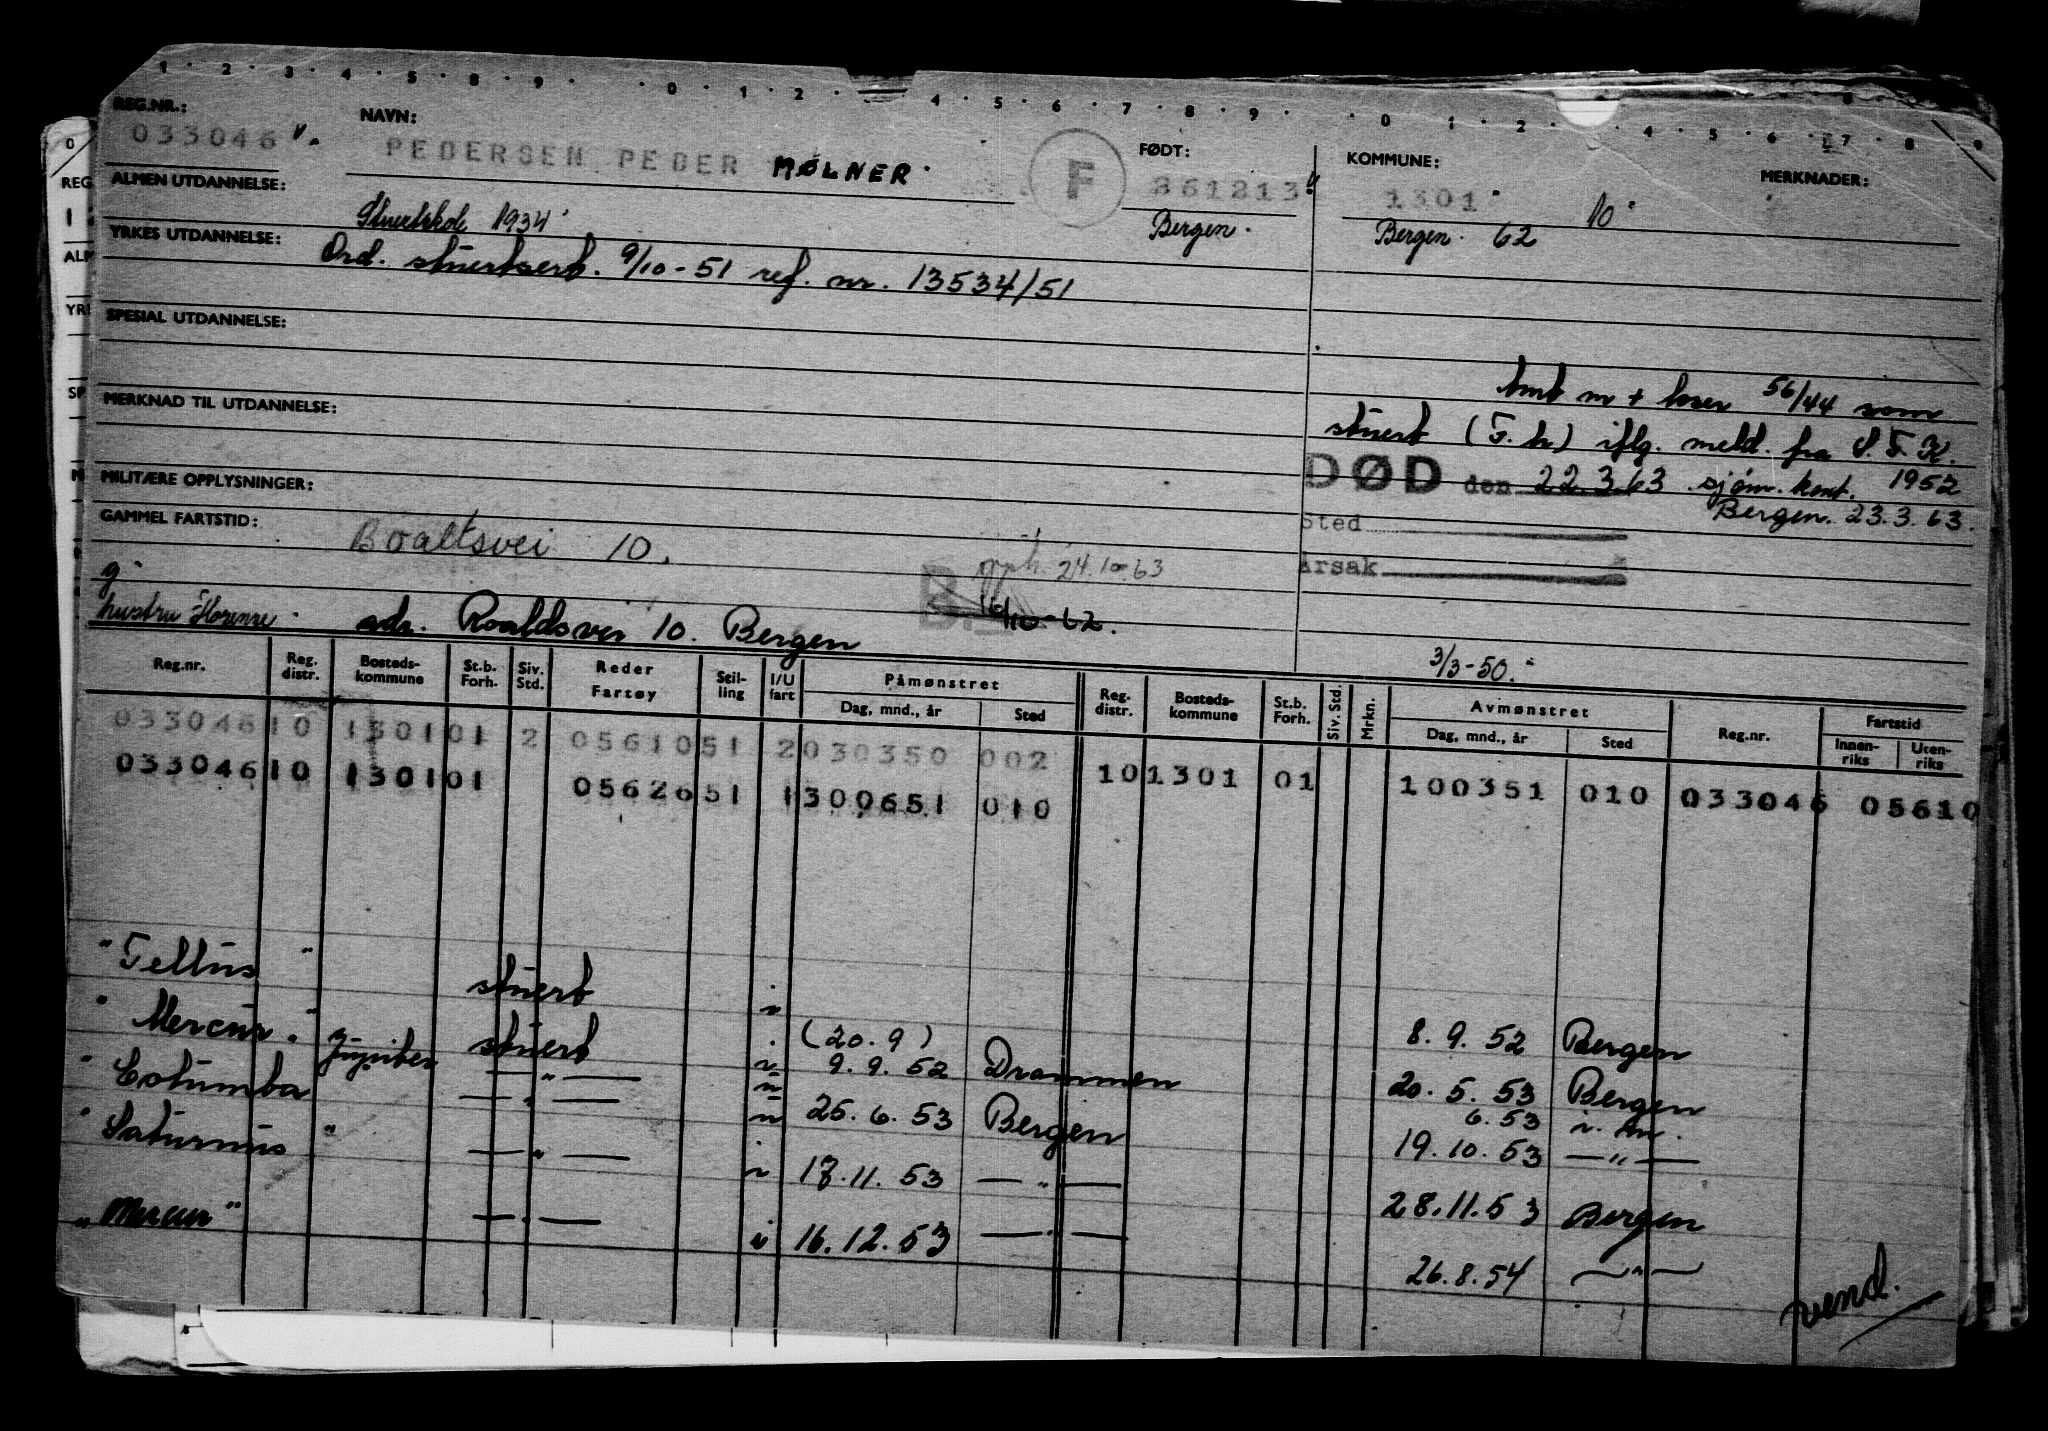 REG.NR.: NAVN: FØDT: KOMMUNE: MERKNADER:
033046 PEDERSEN PEDER MØLNER F 261213 1301 10
ALMEN UTDANNELSE: Stuertskole 1934 Bergen. Bergen. 62
YRKES UTDANNELSE: Ord. stuertsert. 9/10-51 ref. nr. 13534/51
SPESIAL UTDANNELSE:
MERKNAD TIL UTDANNELSE:
56/44 som
stuert (F.h) iflg. meld. fra S.F.K.
1952
DØD den 22.3.63 sjøm. kont.
Bergen. 23.3.63.
Sted
Årsak
MILITÆRE OPPLYSNINGER:
GAMMEL FARTSTID:
Boaltsvei 10.
24.10-63
g.
hustru adr. Roaldsvei 10. Bergen
B. 16/10-62.
3/3-50.
Reg.nr. Reg. distr. Bosteds-kommune St.b. Forh. Siv. Std. Reder Fartøy Stil-ling I/U fart Påmønstret Dag, mnd., år Sted Reg. distr. Bosteds-kommune St.b. Forh. Siv. Std. Mrkn. Avmønstret Dag, mnd., år Sted Reg.nr. Fartstid Innen-riks Uten-riks
033046 10 1301 01 2 05610 51 2 030350 002 10 1301 01 100351 010 033046 05610
033046 10 1301 01 05626 51 1 300651 010
"Tellus" stuert i 8.9.52 Bergen
"Mercur" stuert (20.9) 9.9.52 Drammen 20.5.53 Bergen
Jupiter — " — 6.53
"Columba — " — 25.6.53 Bergen 19.10.53 — " —
"Saturnus" — " — 17.11.53 — " — 28.11.53 Bergen
"Mercur" — " — 16.12.53 — " — 26.8.54 — " —
vend.